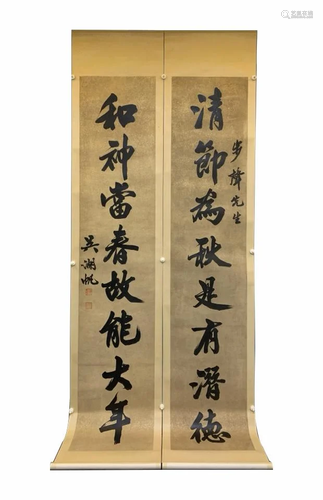 清節為秋是有潛德
步蟾先生
和神當春故能大年
吳湖帆